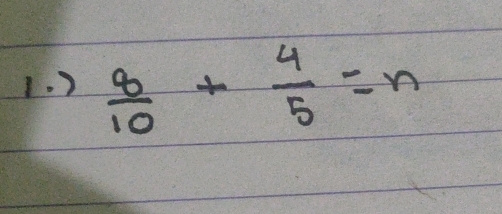 1.) 8/10 + 4/5 = n